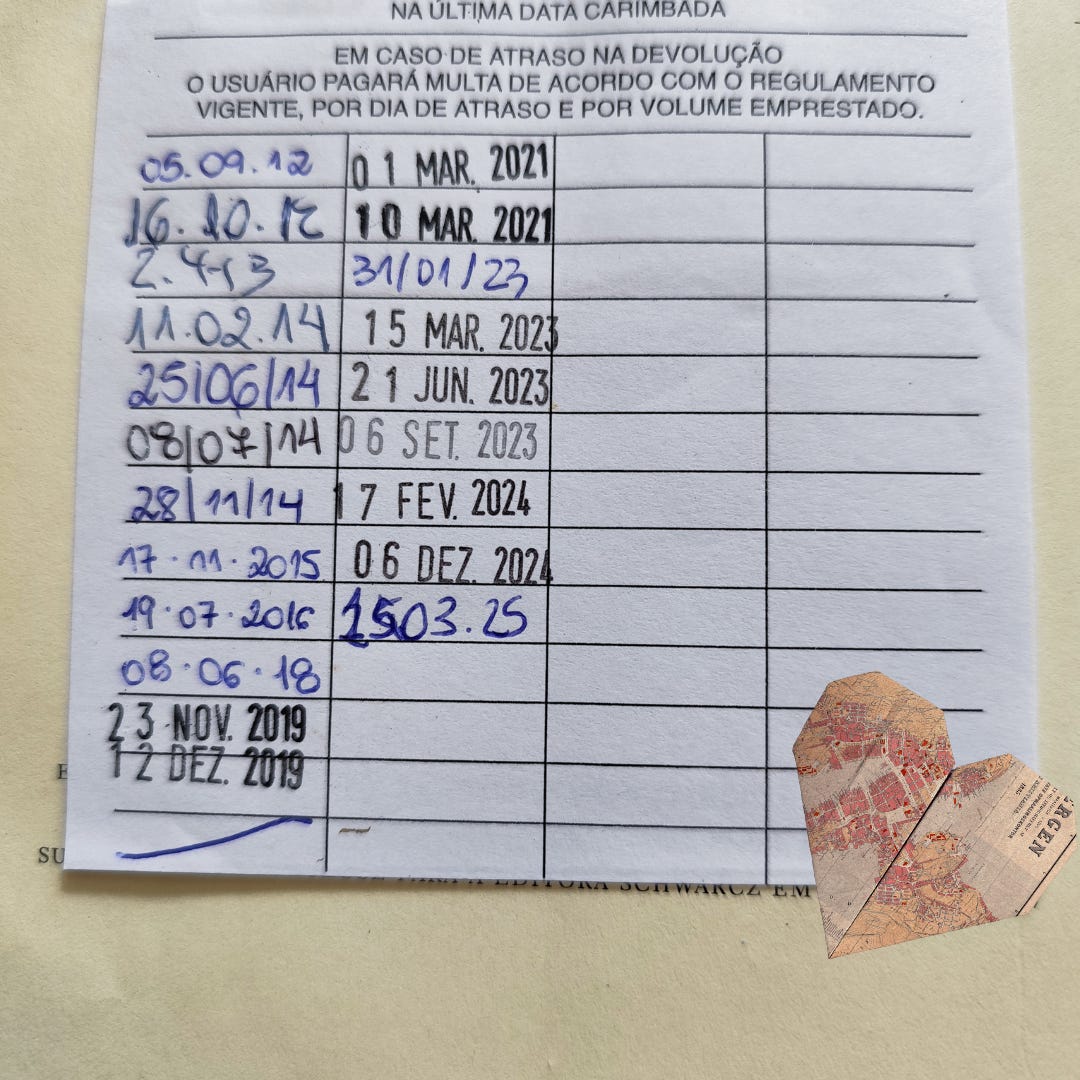 NA ÚLTIMA DATA CARIMBADA
EM CASO DE ATRASO NA DEVOLUÇÃO
O USUÁRIO PAGARÁ MULTA DE ACORDO COM O REGULAMENTO
VIGENTE, POR DIA DE ATRASO E POR VOLUME EMPRESTADO.
05.09.12
16.10.12
2.4-13
11.02.14
25/06/14
08/07/14
28/11/14
17.11.2015
19.07.2016
08.06.18
23 NOV. 2019
12 DEZ. 2019
01 MAR. 2021
10 MAR. 2021
31/01/23
15 MAR. 2023
21 JUN. 2023
06 SET. 2023
17 FEV. 2024
06 DEZ. 2024
15.03.25
SU
PARA A EDITORA SCHWARCZ EM
RGEN